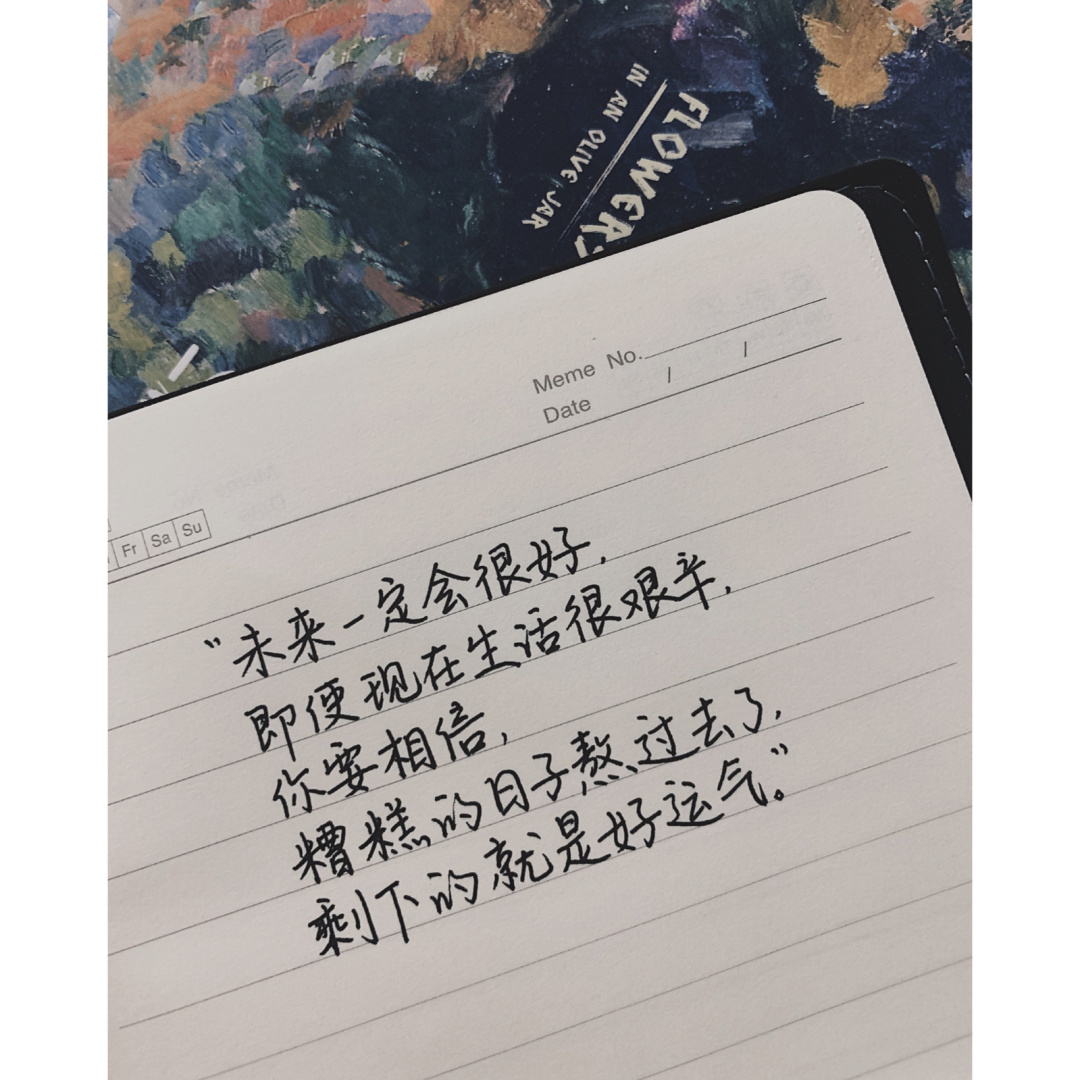 IN AN OLIVE JAR
FLOWERS
Meme No.
Date / /
Fr Sa Su
“未来一定会很好,
即便现在生活很艰辛,
你要相信,
糟糕的日子熬过去了,
剩下的就是好运气。”